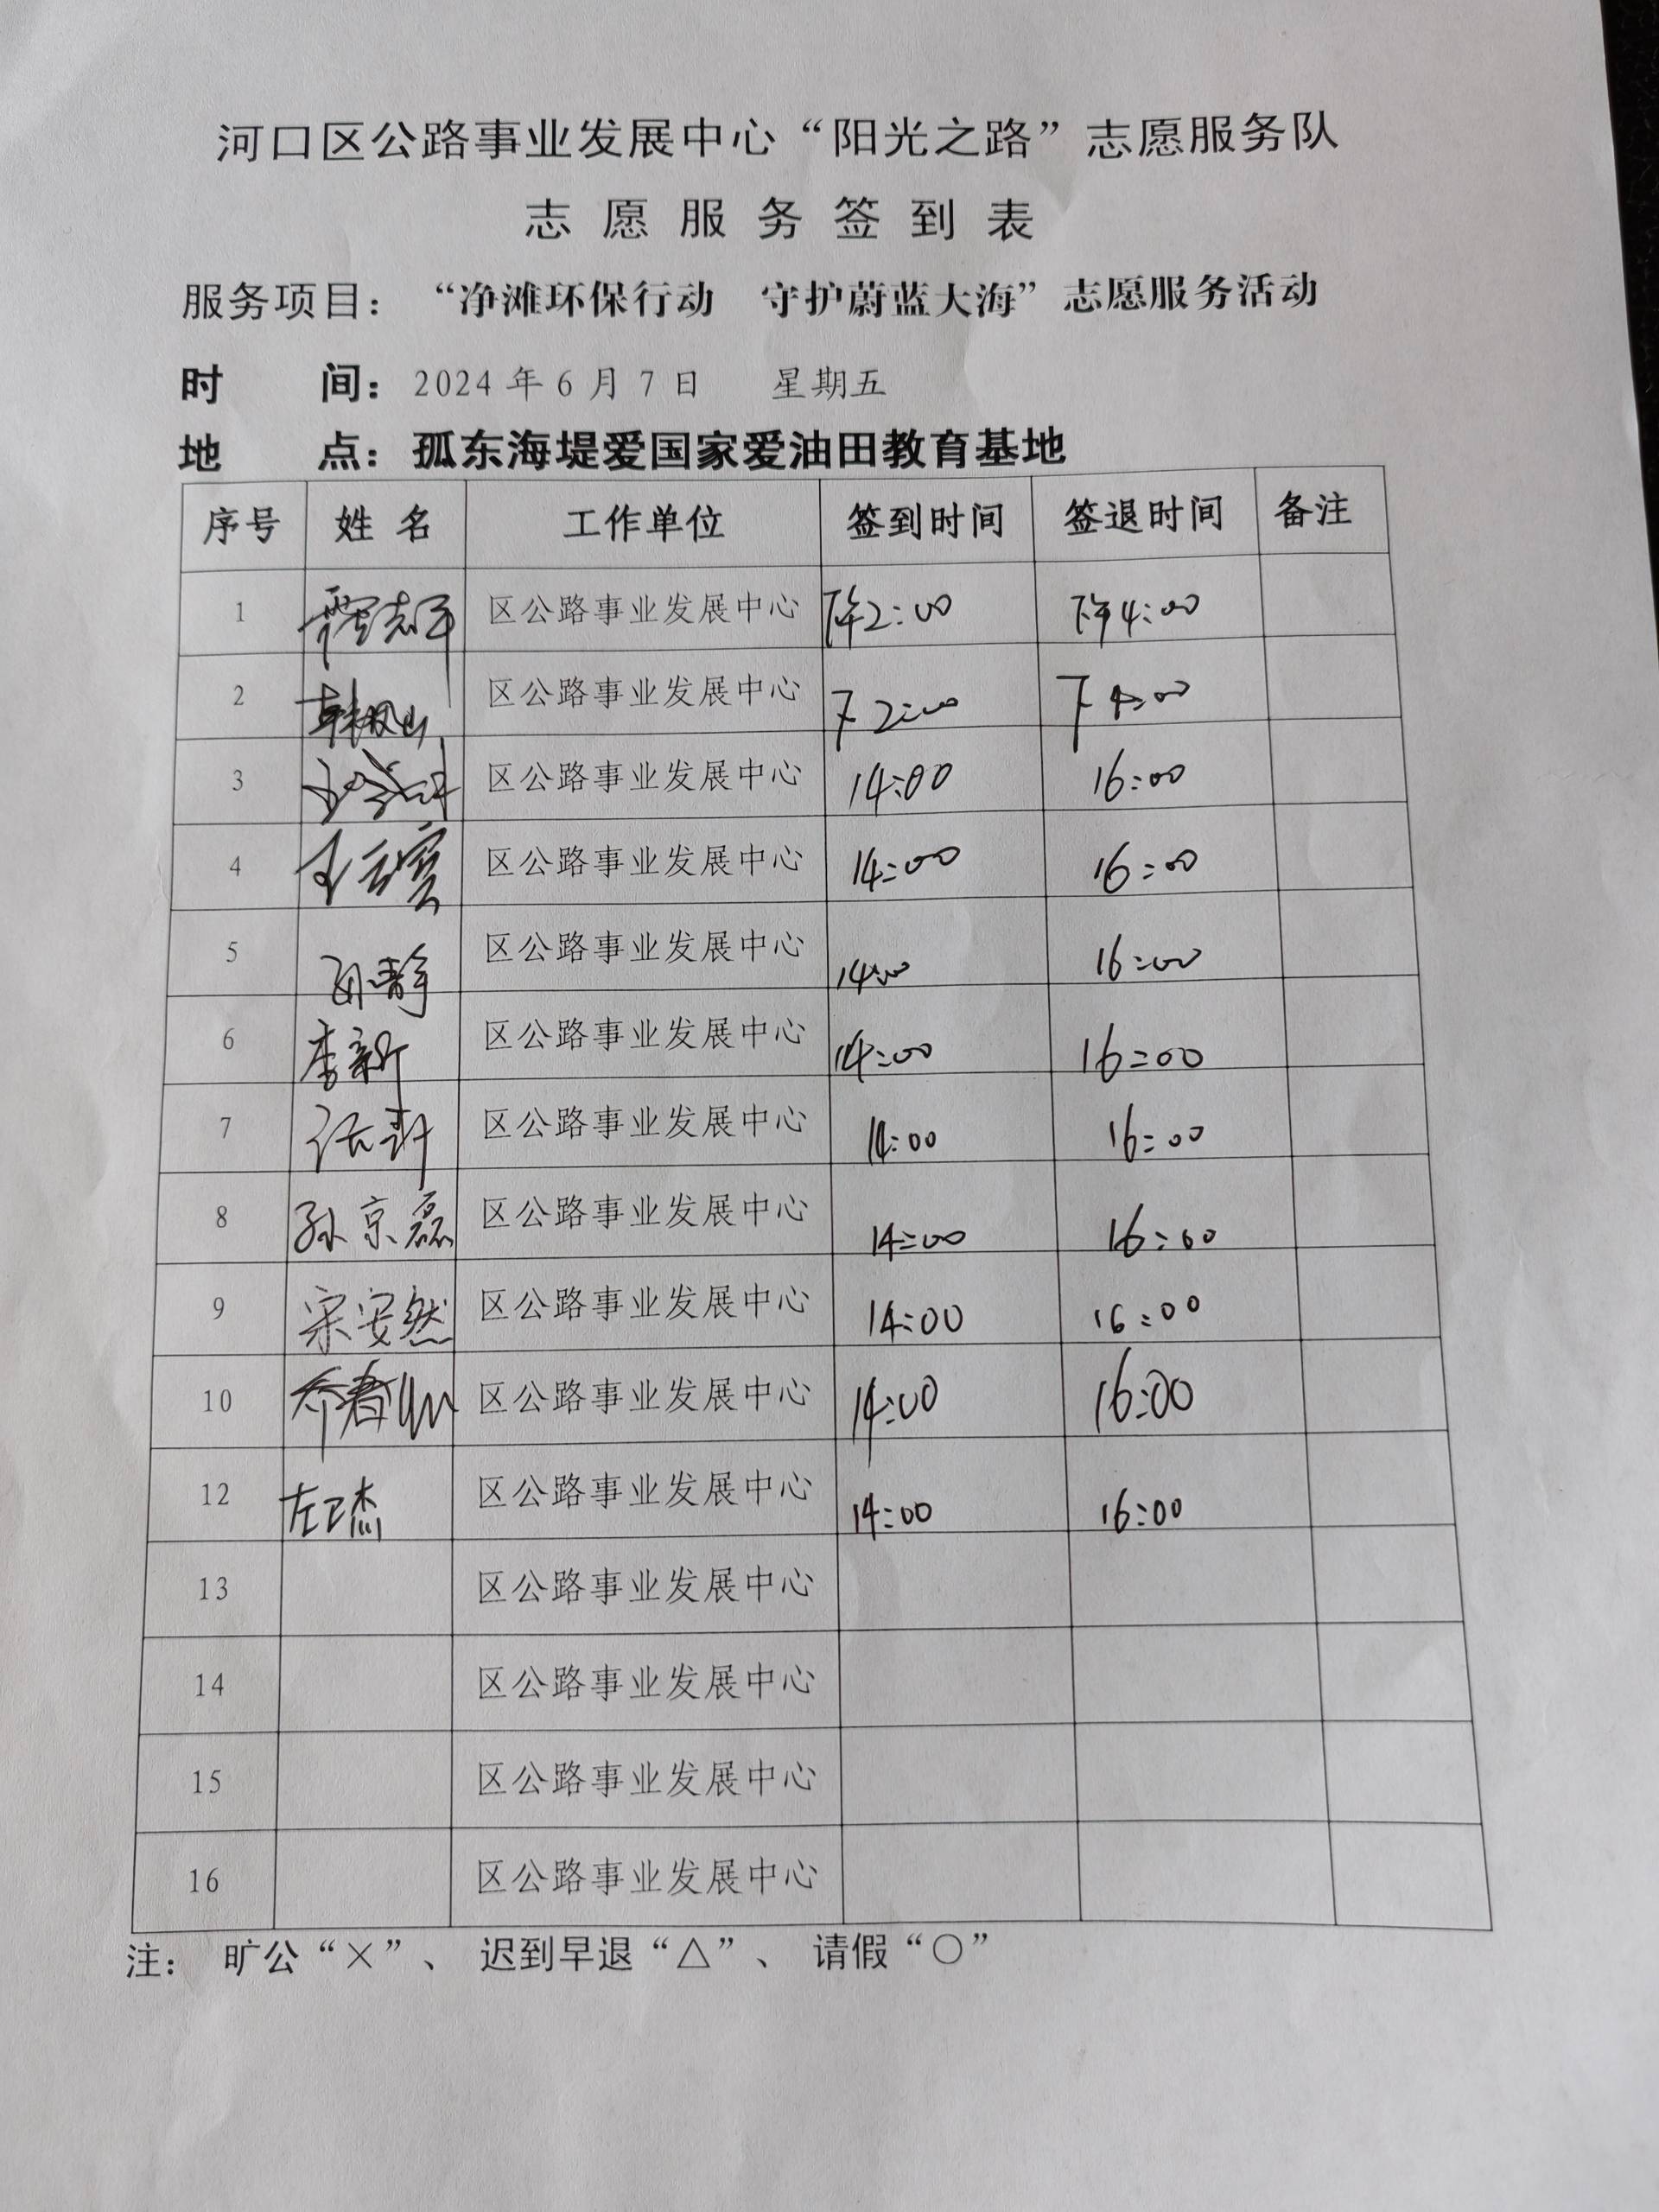 河口区公路事业发展中心“阳光之路”志愿服务队
志愿服务签到表
服务项目：“净滩环保行动 守护蔚蓝大海”志愿服务活动
时 间：2024年6月7日 星期五
地 点：孤东海堤爱国家爱油田教育基地
序号 姓名 工作单位 签到时间 签退时间 备注
1 区公路事业发展中心 下午2:00 下午4:00
2 韩凤山 区公路事业发展中心 下2:00 下4:00
3 区公路事业发展中心 14:00 16:00
4 区公路事业发展中心 14:00 16:00
5 区公路事业发展中心 14:00 16:00
6 李新 区公路事业发展中心 14:00 16:00
7 区公路事业发展中心 14:00 16:00
8 孙京磊 区公路事业发展中心 14:00 16:00
9 宋安然 区公路事业发展中心 14:00 16:00
10 区公路事业发展中心 14:00 16:00
12 左卫杰 区公路事业发展中心 14:00 16:00
13 区公路事业发展中心
14 区公路事业发展中心
15 区公路事业发展中心
16 区公路事业发展中心
注： 旷公“×”、 迟到早退“△”、 请假“○”